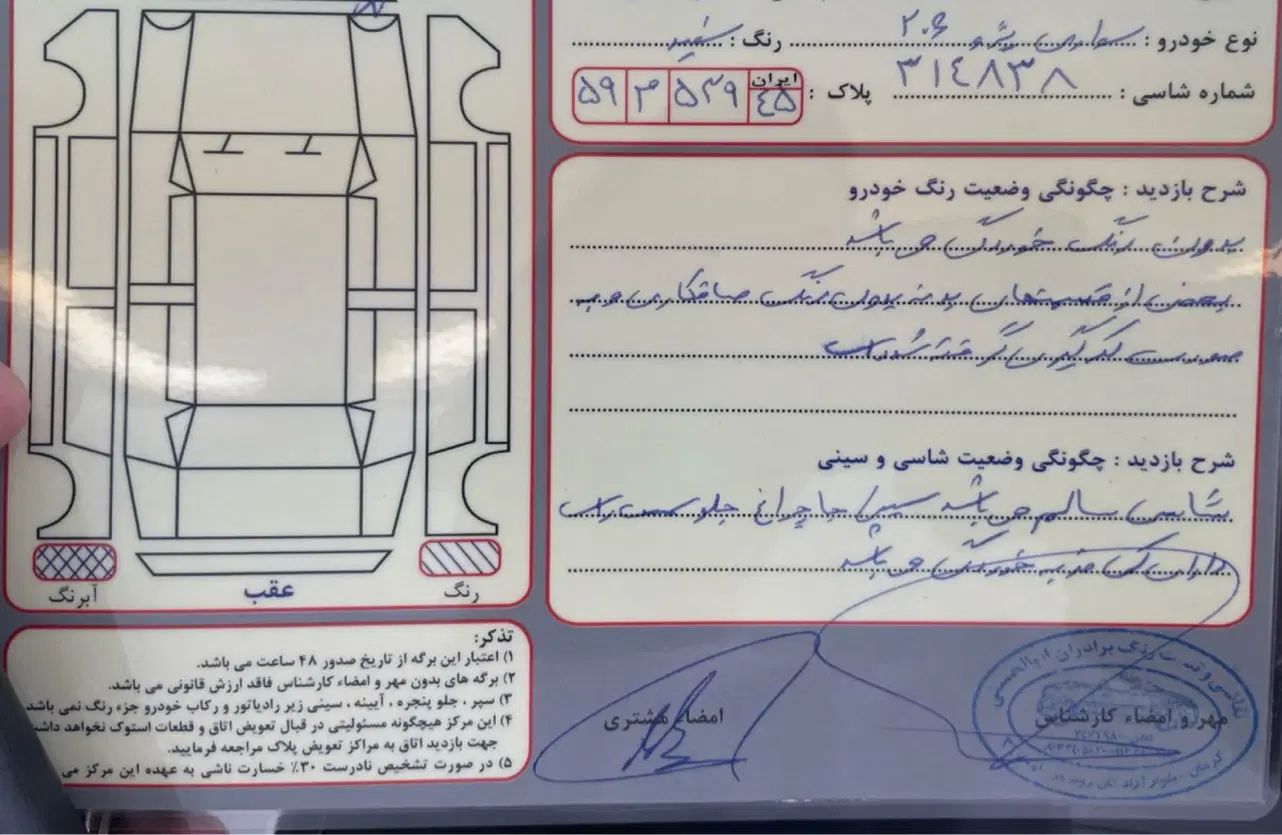 نوع خودرو : سواری پژو ۲۰۶ رنگ : سفید
شماره شاسی : ۳۱۴۸۳۸ پلاک : ایران ۴۵ ۵۳۹ م ۵۹
شرح بازدید : چگونگی وضعیت رنگ خودرو
بدون رنگ خوردگی می باشد
بعضی از قسمتهای بدنه بدون رنگ صافکاری و به
صورت لکه گیری گرفته شده است
شرح بازدید : چگونگی وضعیت شاسی و سینی
شاسی سالم می باشد سینی جا چراغ جلو سمت راست
دارای کمی ضربه خوردگی می باشد
آبرنگ
عقب
رنگ
تذکر:
۱) اعتبار این برگه از تاریخ صدور ۴۸ ساعت می باشد.
۲) برگه های بدون مهر و امضاء کارشناس فاقد ارزش قانونی می باشد.
۳) سپر ، جلو پنجره ، آیینه ، سینی زیر رادیاتور و رکاب خودرو جزء رنگ نمی باشد
۴) این مرکز هیچگونه مسئولیتی در قبال تعویض اتاق و قطعات استوک نخواهد داشت
جهت بازدید اتاق به مراکز تعویض پلاک مراجعه فرمایید.
۵) در صورت تشخیص نادرست ۳۰٪ خسارت ناشی به عهده این مرکز می
امضاء مشتری
مهر و امضاء کارشناس
نقاشی و تست رنگ برادران ابوالحسنی